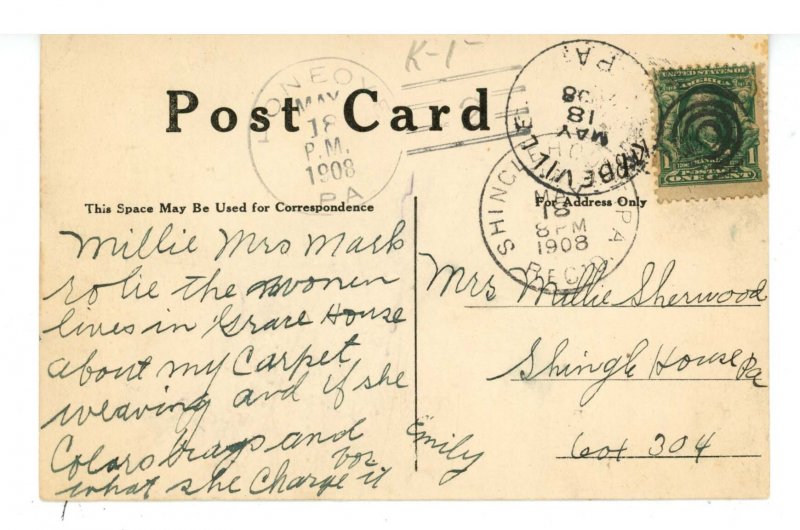 K-1-
Post Card
ONEOV
MAY
18
P.M.
1908
PA
MAY
18
PA.
SHINGL
PA
18
8 PM
1908
REC'D.
UNITED STATES OF
AMERICA
1 1
POSTAGE
ONE CENT
This Space May Be Used for Correspondence
For Address Only
Millie Mrs Mack
the women
lives in Grace House
about my Carpet
weaving and if she
Colors rags and
for
what she Charge it
Emily
Mrs Millie Sherwood
Shingle House Pa
box 304